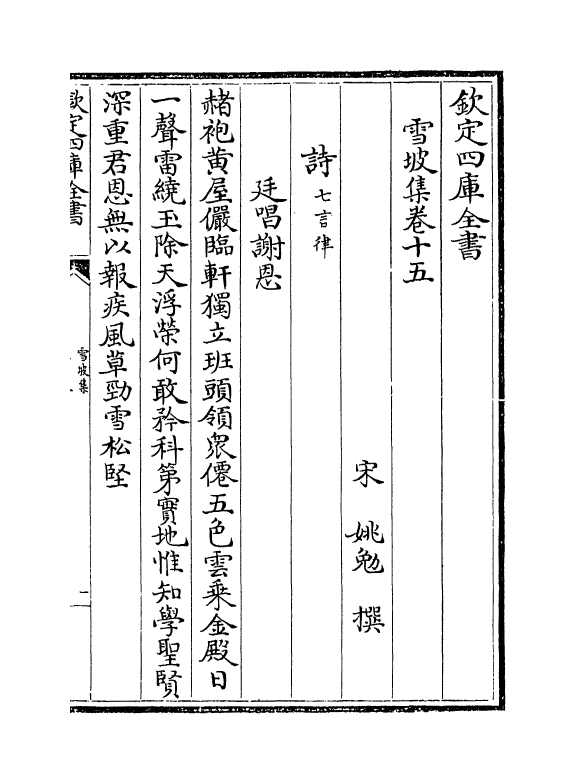 欽定四庫全書
雪坡集卷十五
宋 姚勉 撰
詩 七言律
廷唱謝恩
赭袍黄屋儼臨軒獨立班頭領衆僊五色雲乘金殿日
一聲雷繞玉除天浮榮何敢矜科第實地惟知學聖賢
深重君恩無以報疾風草勁雪松堅
欽定四庫全書
雪坡集